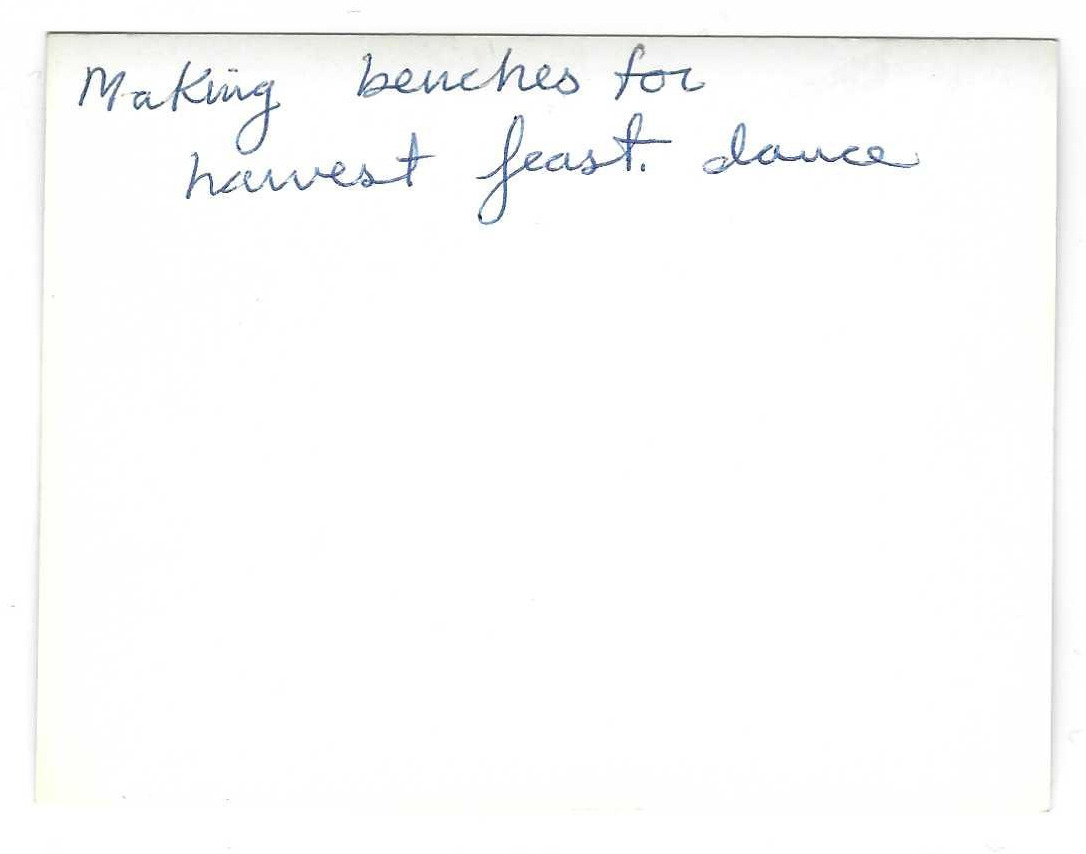 Making benches for
harvest feast. dance